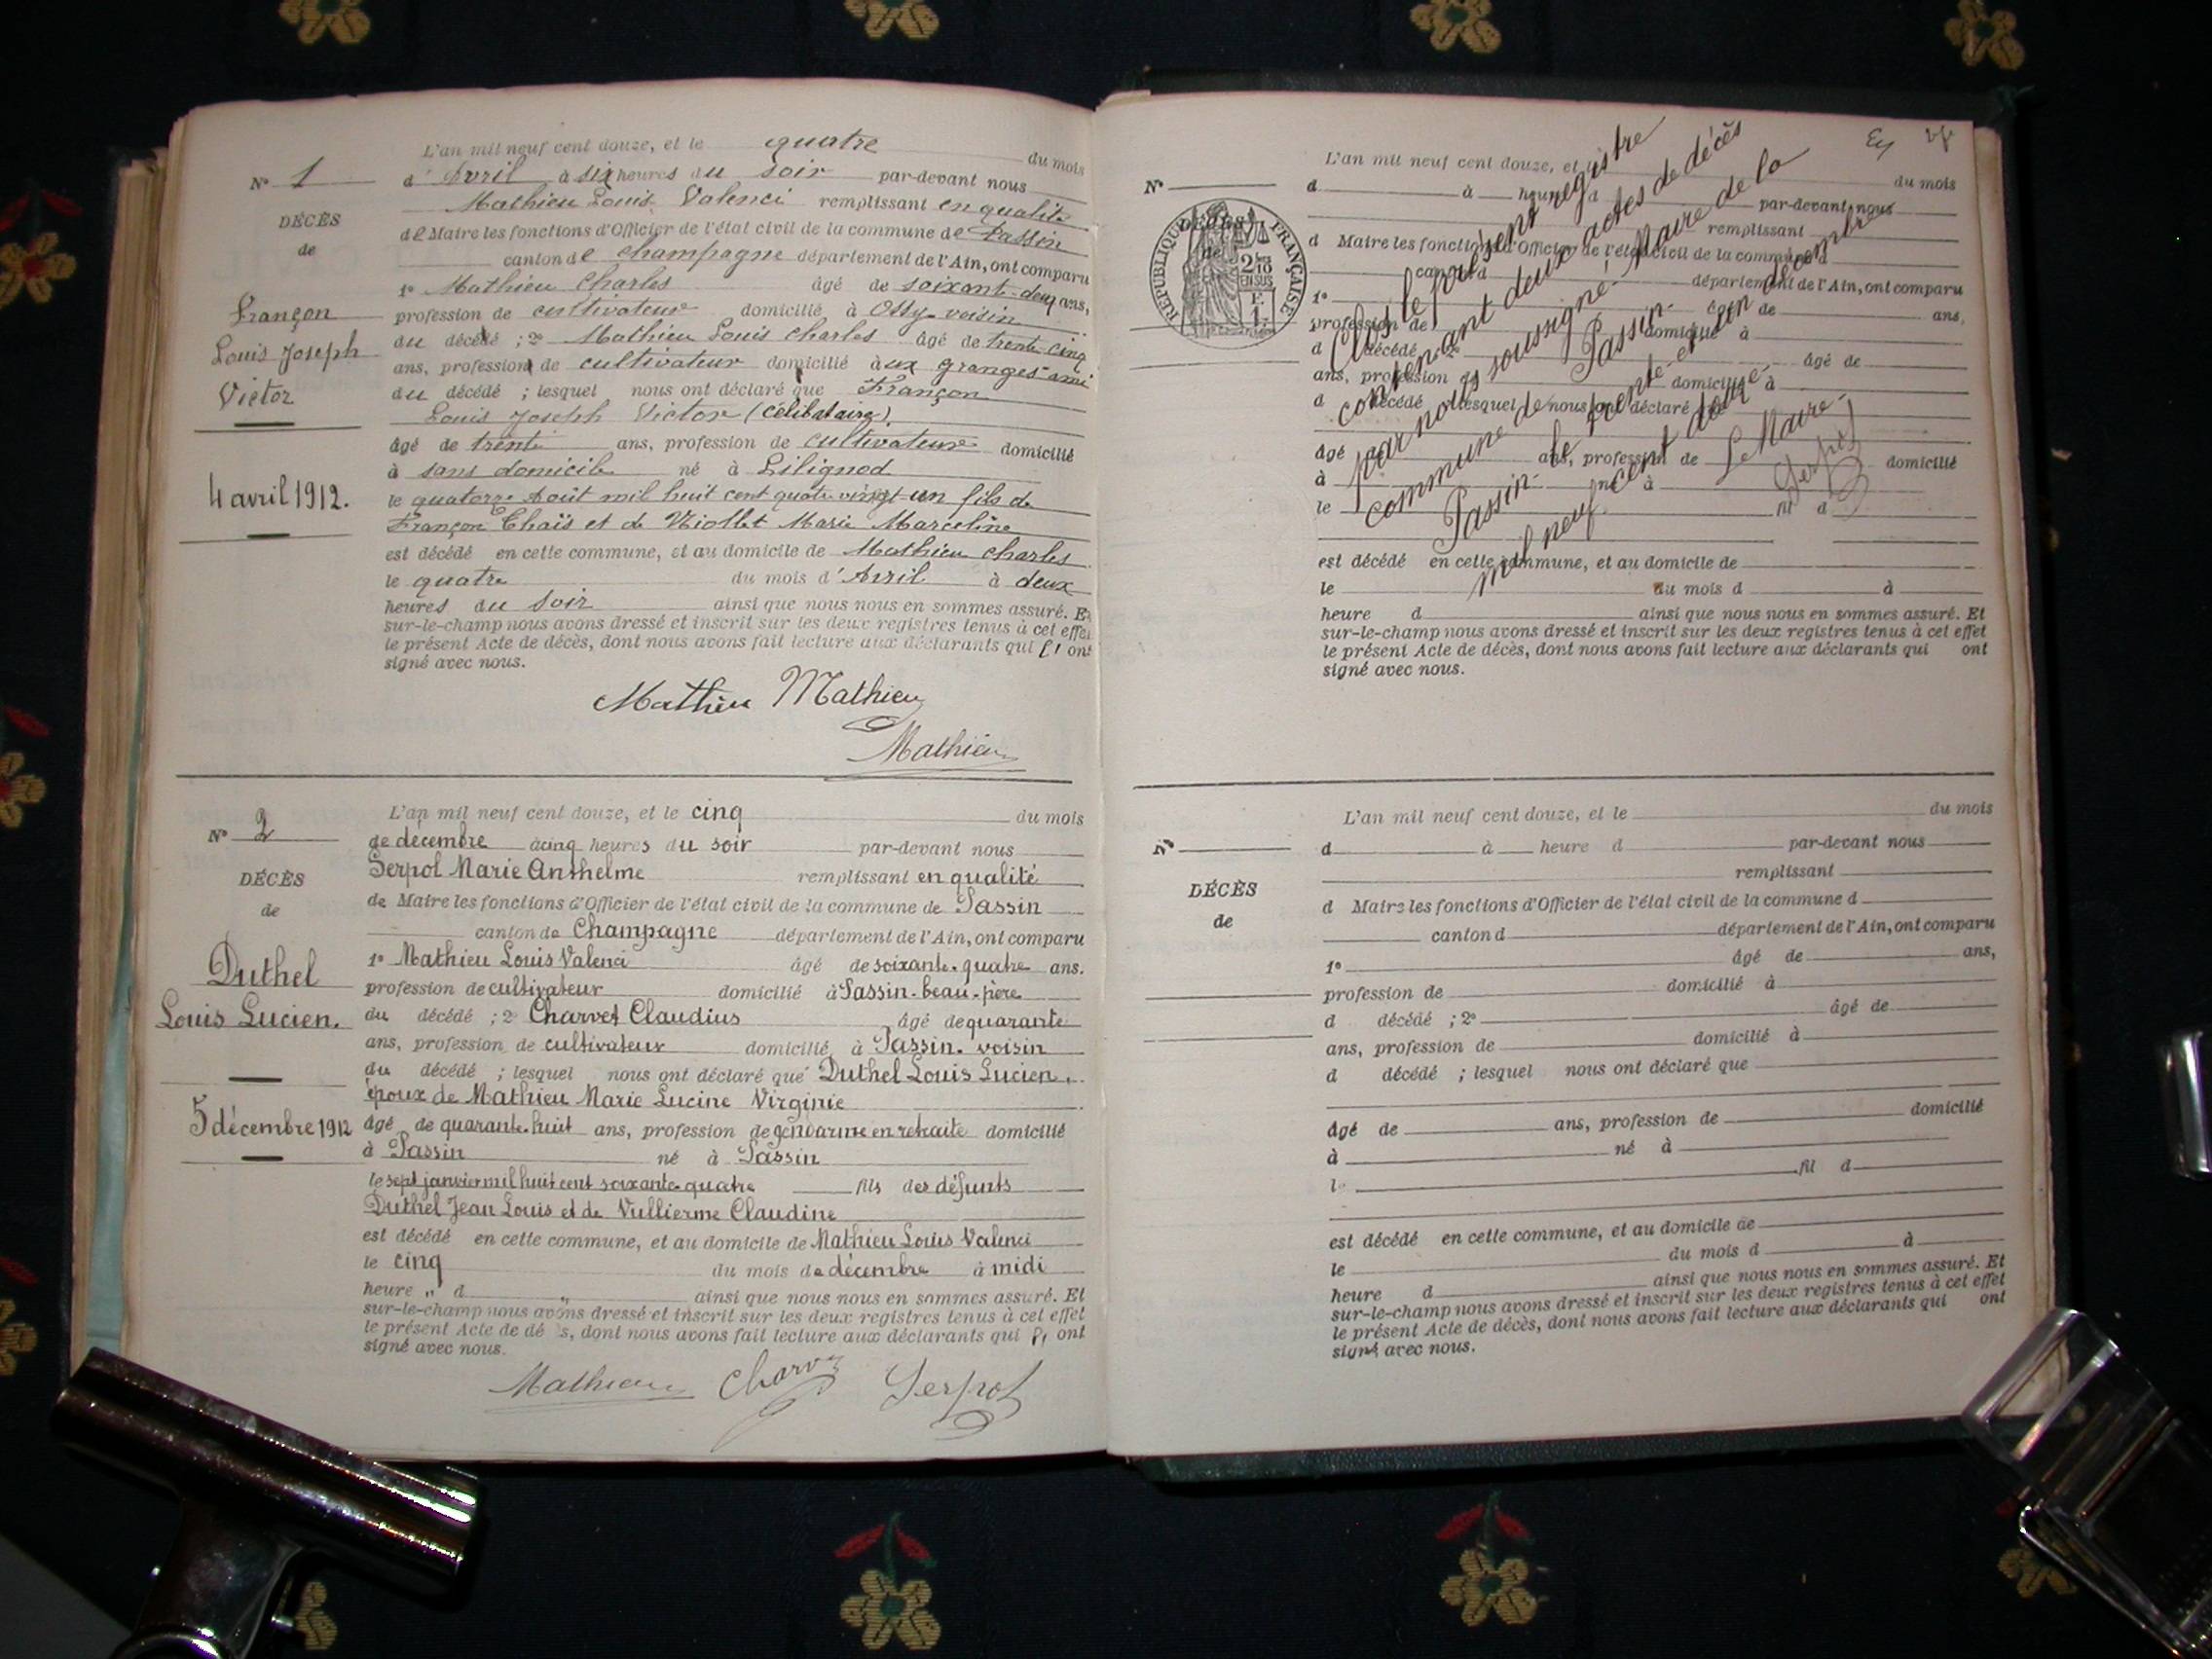 L'an mil neuf cent douze, et le quatre du mois
N° 1 d'Avril à six heures du soir par-devant nous
Mathieu Louis Valenci remplissant en qualité
DÉCÈS de Maire les fonctions d'Officier de l'état civil de la commune de Passin
de canton de Champagne département de l'Ain, ont comparu
1° Mathieu Charles âgé de soixant-deux ans,
Françon profession de cultivateur domicilié à Ossy voisin
Louis Joseph du décédé ; 2° Mathieu Louis Charles âgé de trente cinq
ans, profession de cultivateur domicilié aux granges ami
Victor du décédé ; lesquel nous ont déclaré que Françon
Louis Joseph Victor (célibataire).
âgé de trente ans, profession de cultivateur domicilié
à sans domicile né à Lilignod
4 avril 1912. le quatorze Août mil huit cent quatre vingt-un fils de
Françon Thaïs et de Viollet Marie Marceline
est décédé en cette commune, et au domicile de Mathieu Charles
le quatre du mois d'Avril à deux
heures du soir ainsi que nous nous en sommes assuré. Et
sur-le-champ nous avons dressé et inscrit sur les deux registres tenus à cet effet
le présent Acte de décès, dont nous avons fait lecture aux déclarants qui ont
signé avec nous.
Mathieu Mathieu
Mathieu
L'an mil neuf cent douze, et le cinq du mois
N° 2 de décembre à cinq heures du soir par-devant nous
Serpol Marie Anthelme remplissant en qualité
DÉCÈS
de de Maire les fonctions d'Officier de l'état civil de la commune de Passin
canton de Champagne département de l'Ain, ont comparu
1° Mathieu Louis Valenci âgé de soixante-quatre ans.
Duthel profession de cultivateur domicilié à Passin-beau-père
Louis Lucien. du décédé ; 2 Charvet Claudius âgé de quarante
ans, profession de cultivateur domicilié à Passin. voisin
du décédé ; lesquel nous ont déclaré que Duthel Louis Lucien,
époux de Mathieu Marie Lucine Virginie
5 décembre 1912 âgé de quarante-huit ans, profession de gendarme en retraite domicilié
à Passin né à Passin
le sept janvier mil huit cent soixante quatre fils des défunts
Duthel Jean Louis et de Vullierme Claudine
est décédé en cette commune, et au domicile de Mathieu Louis Valenci
le cinq du mois de décembre à midi
heure " d " ainsi que nous nous en sommes assuré. Et
sur-le-champ nous avons dressé et inscrit sur les deux registres tenus à cet effet
le présent Acte de dé s, dont nous avons fait lecture aux déclarants qui ont
signé avec nous.
Mathieu Charvet Serpol
L'an mil neuf cent douze, et du mois
N° d à heure d par-devant nous
DÉCÈS remplissant
de d Maire les fonctions d'Officier de l'état civil de la commune d
RÉPUBLIQUE FRANÇAISE
2/10 EN SUS
canton d département de l'Ain, ont comparu
1° âgé de ans,
profession de domicilié à
d décédé ; 2° âgé de
ans, profession de domicilié à
d décédé ; lesquel nous ont déclaré que
âgé de ans, profession de domicilié
à né à
le fil d
est décédé en cette commune, et au domicile de
le du mois d à
heure d ainsi que nous nous en sommes assuré. Et
sur-le-champ nous avons dressé et inscrit sur les deux registres tenus à cet effet
le présent Acte de décès, dont nous avons fait lecture aux déclarants qui ont
signé avec nous.
Clos le présent registre
contenant deux actes de décès
par nous soussigné Maire de la
commune de Passin.
Passin le trente et un décembre
mil neuf cent douze
Le Maire
Serpol
L'an mil neuf cent douze, et le du mois
N° d à heure d par-devant nous
remplissant
DÉCÈS
de d Maire les fonctions d'Officier de l'état civil de la commune d
canton d département de l'Ain, ont comparu
1° âgé de ans,
profession de domicilié à
d décédé ; 2° âgé de
ans, profession de domicilié à
d décédé ; lesquel nous ont déclaré que
âgé de ans, profession de domicilié
à né à
l fil d
est décédé en cette commune, et au domicile de
le du mois d à
heure d ainsi que nous nous en sommes assuré. Et
sur-le-champ nous avons dressé et inscrit sur les deux registres tenus à cet effet
le présent Acte de décès, dont nous avons fait lecture aux déclarants qui ont
signé avec nous.